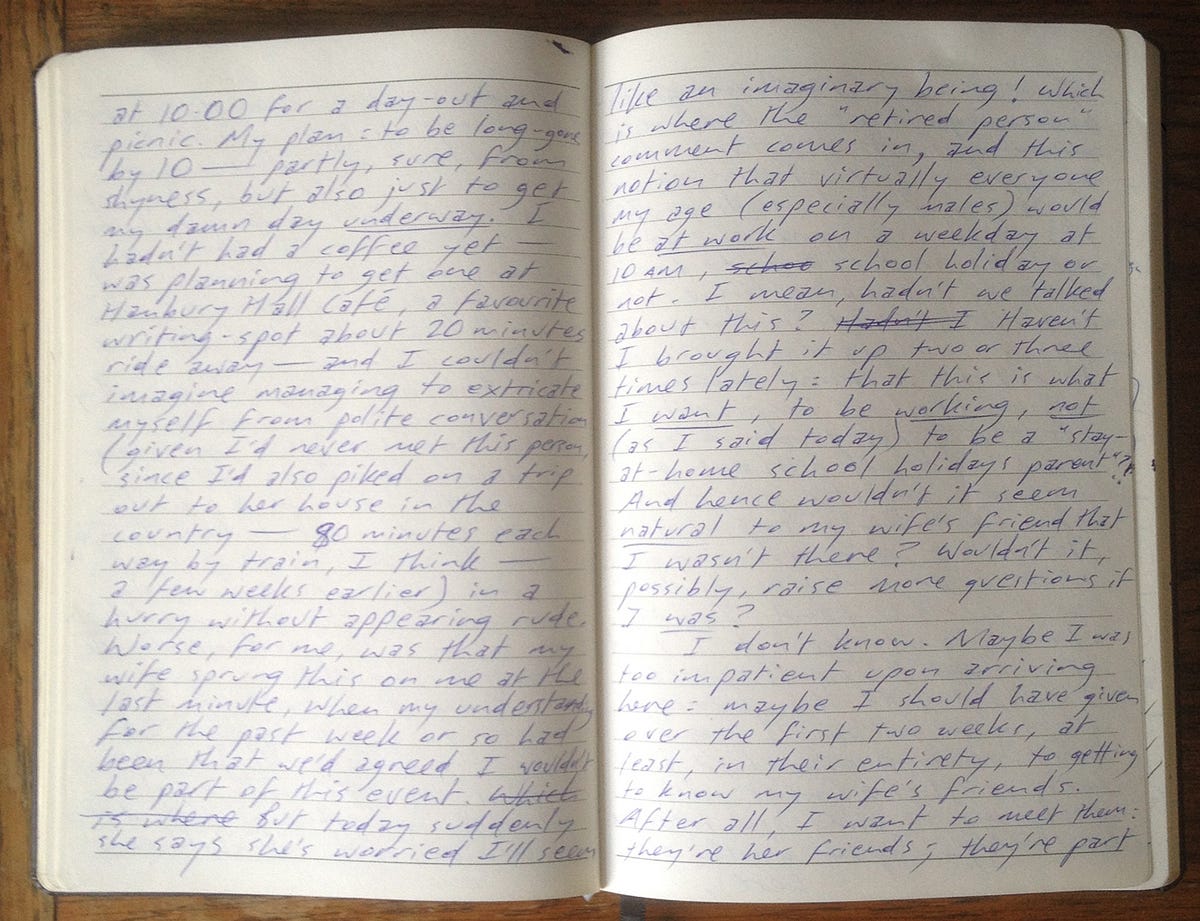 at 10.00 for a day-out and
picnic. My plan: to be long-gone
by 10 — partly, sure, from
shyness, but also just to get
my damn day underway. I
hadn't had a coffee yet —
was planning to get one at
Hanbury Hall Cafe, a favourite
writing-spot about 20 minutes
ride away — and I couldn't
imagine managing to extricate
myself from polite conversation
(given I'd never met this person,
since I'd also piked on a trip
out to her house in the
country — 80 minutes each
way by train, I think —
a few weeks earlier) in a
hurry without appearing rude.
Worse, for me, was that my
wife sprung this on me at the
last minute, when my understanding
for the past week or so had
been that we'd agreed I wouldn't
be part of this event. Which
is where But today suddenly
she says she's worried I'll seem
like an imaginary being! Which
is where the "retired person"
comment comes in, and this
notion that virtually everyone
my age (especially males) would
be at work on a weekday at
10 AM, schoo school holiday or
not. I mean, hadn't we talked
about this? Hadn't I Haven't
I brought it up two or three
times lately: that this is what
I want, to be working, not
(as I said today) to be a "stay-
at-home school holidays parent"?
And hence wouldn't it seem
natural to my wife's friend that
I wasn't there? Wouldn't it,
possibly, raise more questions if
I was?
I don't know. Maybe I was
too impatient upon arriving
here: maybe I should have given
over the first two weeks, at
least, in their entirety, to getting
to know my wife's friends.
After all, I want to meet them:
they're her friends; they're part